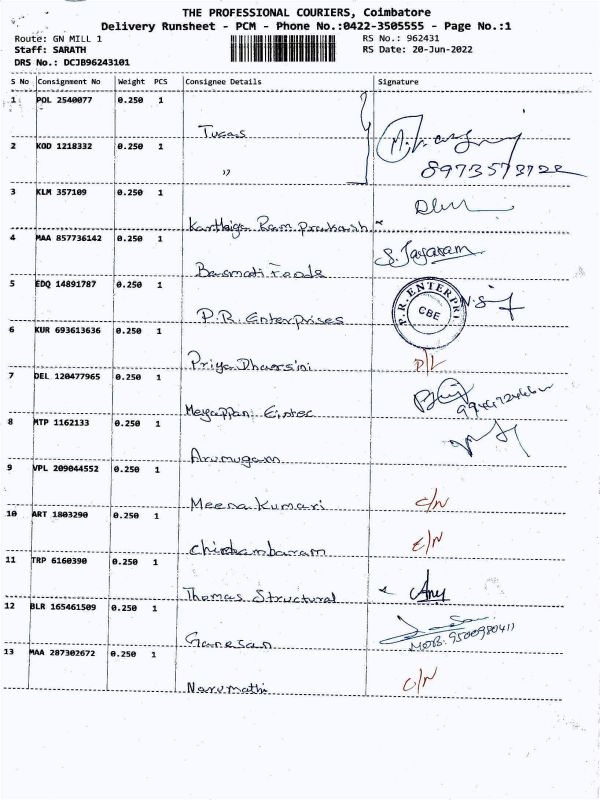 THE PROFESSIONAL COURIERS, Coimbatore
Delivery Runsheet - PCM - Phone No.:0422-3505555 - Page No.:1
Route: GN MILL 1 RS No.: 962431
Staff: SARATH RS Date: 20-Jun-2022
DRS No.: DCJB96243101
S No Consignment No Weight PCS Consignee Details Signature
1 POL 2540077 0.250 1
Tucas
2 KOD 1218332 0.250 1
" 8973573722
3 KLM 357109 0.250 1
Karthiga Ram prakash
4 MAA 857736142 0.250 1 S. Jayaram
Basmati Foods
5 EDQ 14891787 0.250 1 P.R. ENTERPRI
CBE
P.R. Enterprises
6 KUR 693613636 0.250 1
Priya Dharsini D/L
7 DEL 120477965 0.250 1
Meyappan
8 MTP 1162133 0.250 1
Arumugam
9 VPL 209044552 0.250 1
Meena Kumari C/N
10 ART 1803290 0.250 1
Chidambaram C/N
11 TRP 6160390 0.250 1
Thomas Structural Any
12 BLR 165461509 0.250 1
Ganesan MOB: 9500980411
13 MAA 287302672 0.250 1
Narumathi C/N